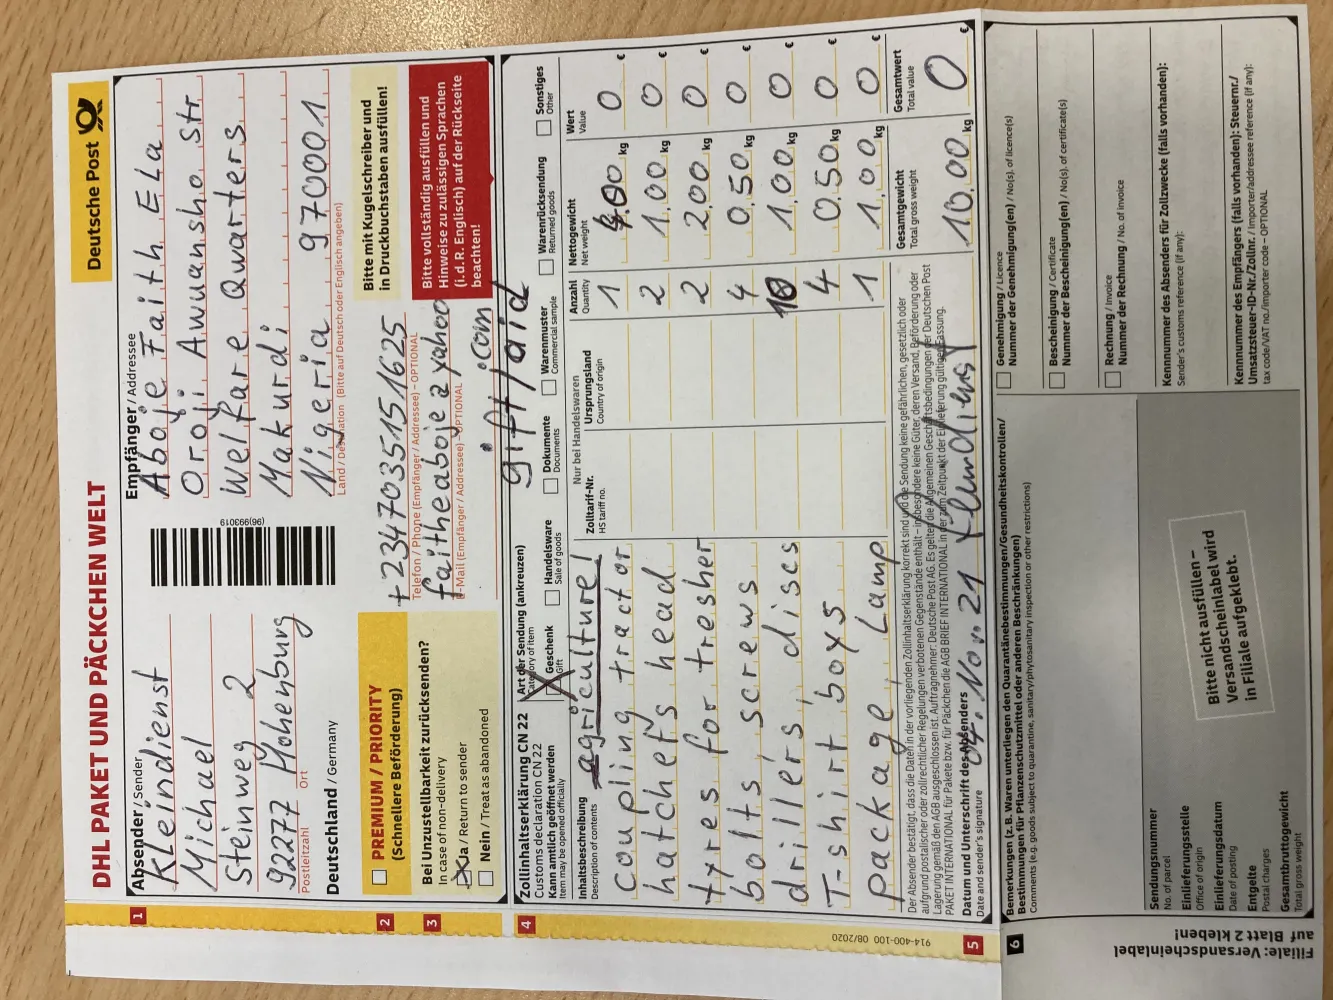 DHL PAKET UND PÄCKCHEN WELT
Deutsche Post
1
Absender / Sender
Kleindienst
Michael
Steinweg 2
92277 Hohenburg
Postleitzahl Ort
Deutschland / Germany
(96)993019
Empfänger / Addressee
Aboje Faith Ela
Oroji Awuansho Str.
Welfare Qwarters
Makurdi
Nigeria 970001
Land / Destination (Bitte auf Deutsch oder Englisch angeben)
2
PREMIUM / PRIORITY
(Schnellere Beförderung)
+2347035151625
Telefon / Phone (Empfänger / Addressee) – OPTIONAL
faitheaboje@yahoo
.com
E-Mail (Empfänger / Addressee) – OPTIONAL
Bitte mit Kugelschreiber und
in Druckbuchstaben ausfüllen!
3
Bei Unzustellbarkeit zurücksenden?
In case of non-delivery
Ja / Return to sender
Nein / Treat as abandoned
Bitte vollständig ausfüllen und
Hinweise zu zulässigen Sprachen
(i.d.R. Englisch) auf der Rückseite
beachten!
4
Zollinhaltserklärung CN 22
Customs declaration CN 22
Kann amtlich geöffnet werden
Item may be opened officially
Art der Sendung (ankreuzen)
Category of item
Geschenk
Gift
Handelsware
Sale of goods
Dokumente
Documents
Warenmuster
Commercial sample
Warenrücksendung
Returned goods
Sonstiges
Other
gift/aid
Inhaltsbeschreibung
Description of contents
agriculture!
Nur bei Handelswaren
Zolltarif-Nr.
HS tariff no.
Ursprungsland
Country of origin
Anzahl
Quantity
Nettogewicht
Net weight
Wert
Value
coupling tractor 1 4.00 kg 0 €
hatchets head 2 1.00 kg 0 €
tyres for tresher 2 2.00 kg 0 €
bolts, screws 4 0.50 kg 0 €
drillers, discs 10 1.00 kg 0 €
T-shirt boys 4 0.50 kg 0 €
package, Lamp 1 1.00 kg 0 €
Der Absender bestätigt, dass die Daten in der vorliegenden Zollinhaltserklärung korrekt sind und die Sendung keine gefährlichen, gesetzlich oder
aufgrund postalischer oder zollrechtlicher Regelungen verbotenen Gegenstände enthält – insbesondere keine Güter, deren Versand, Beförderung oder
Lagerung gemäß den AGB ausgeschlossen ist. Auftragnehmer: Deutsche Post AG. Es gelten die Allgemeinen Geschäftsbedingungen der Deutschen Post
PAKET INTERNATIONAL für Pakete bzw. für Päckchen die AGB BRIEF INTERNATIONAL in der zum Zeitpunkt der Einlieferung gültigen Fassung.
Gesamtgewicht
Total gross weight
10.00 kg
Gesamtwert
Total value
0 €
5
Datum und Unterschrift des Absenders
Date and sender's signature
04. Nov. 21 Kleindienst
914-400-100 08/2020
6
Bemerkungen (z.B. Waren unterliegen den Quarantänebestimmungen/Gesundheitskontrollen/
Bestimmungen für Pflanzenschutzmittel oder anderen Beschränkungen)
Comments (e.g. goods subject to quarantine, sanitary/phytosanitary inspection or other restrictions)
Genehmigung / Licence
Nummer der Genehmigung(en) / No(s). of licence(s)
Bescheinigung / Certificate
Nummer der Bescheinigung(en) / No(s). of certificate(s)
Rechnung / Invoice
Nummer der Rechnung / No. of invoice
Kennnummer des Absenders für Zollzwecke (falls vorhanden):
Sender's customs reference (if any):
Kennnummer des Empfängers (falls vorhanden): Steuernr./
Umsatzsteuer-ID-Nr./Zollnr. / Importer/addressee reference (if any):
tax code/VAT no./importer code – OPTIONAL
Sendungsnummer
No. of parcel
Einlieferungsstelle
Office of origin
Einlieferungsdatum
Date of posting
Entgelte
Postal charges
Gesamtbruttogewicht
Total gross weight
Bitte nicht ausfüllen –
Versandscheinlabel wird
in Filiale aufgeklebt.
Filiale: Versandscheinlabel
auf Blatt 2 kleben!